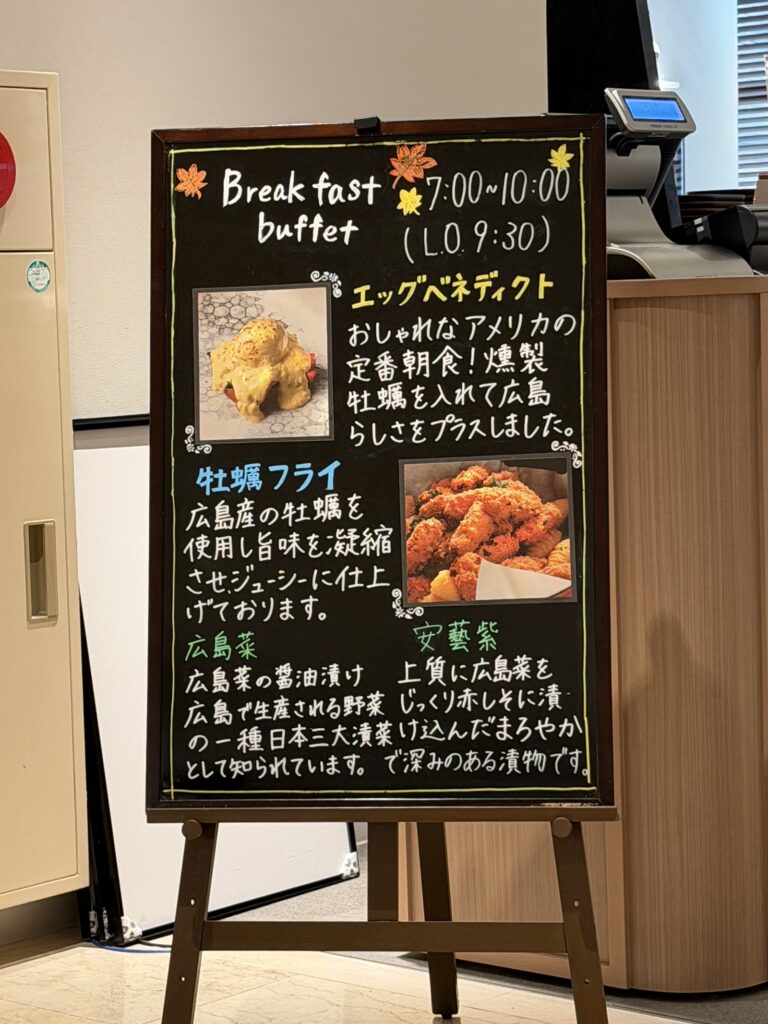 Breakfast 7:00~10:00
buffet (L.O. 9:30)
エッグベネディクト
おしゃれなアメリカの
定番朝食！燻製
牡蠣を入れて広島
らしさをプラスしました。
牡蠣フライ
広島産の牡蠣を
使用し旨味を凝縮
させジューシーに仕上
げております。
広島菜
広島菜の醤油漬け
広島で生産される野菜
の一種日本三大漬菜
として知られています。
安藝紫
上質に広島菜を
じっくり赤しそに漬
け込んだまろやか
で深みのある漬物です。